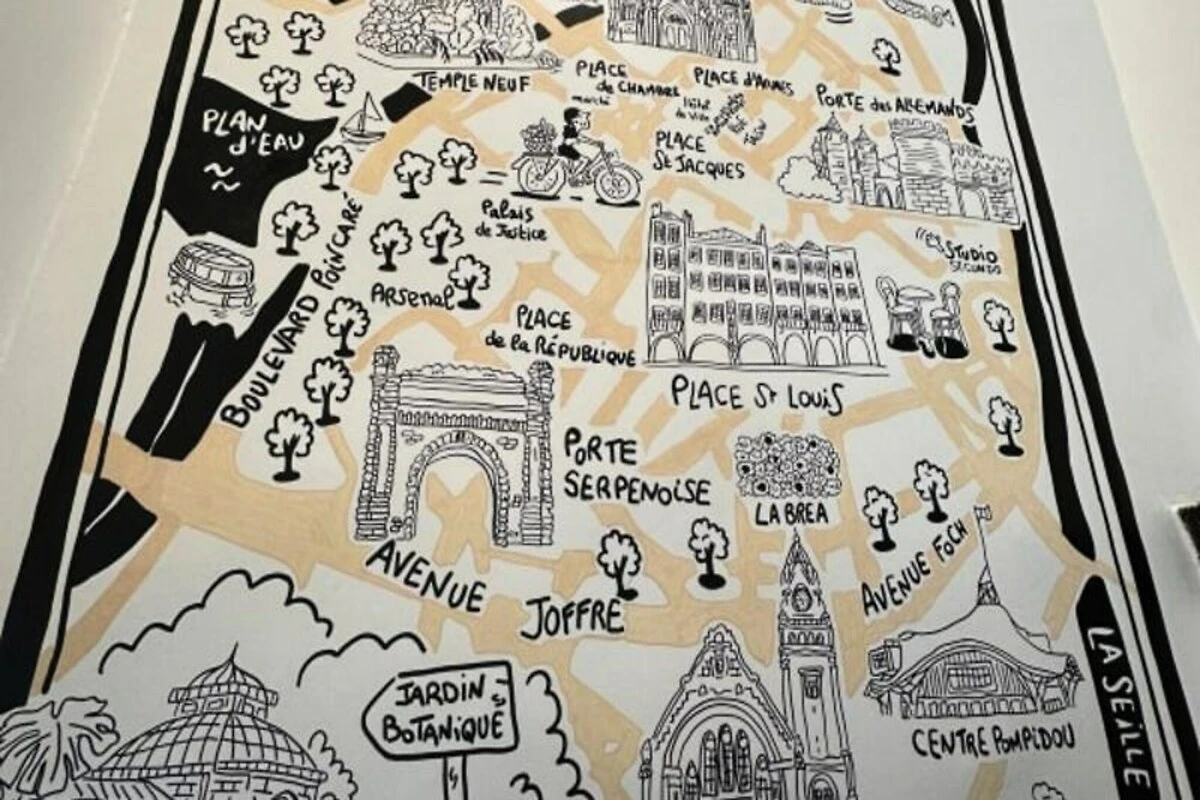 TEMPLE NEUF
PLACE
de CHAMBRE
marché
PLACE d'ARMES
PORTE des ALLEMANDS
PLAN
d'EAU
PLACE
St JACQUES
Palais
de Justice
STUDIO
SECUNDO
BOULEVARD POINCARÉ
Arsenal
PLACE
de la RÉPUBLIQUE
PLACE St LOUIS
PORTE
SERPENOISE
LA BREA
AVENUE
JOFFRE
AVENUE FOCH
JARDIN
BOTANIQUE
CENTRE POMPIDOU
LA SEILLE